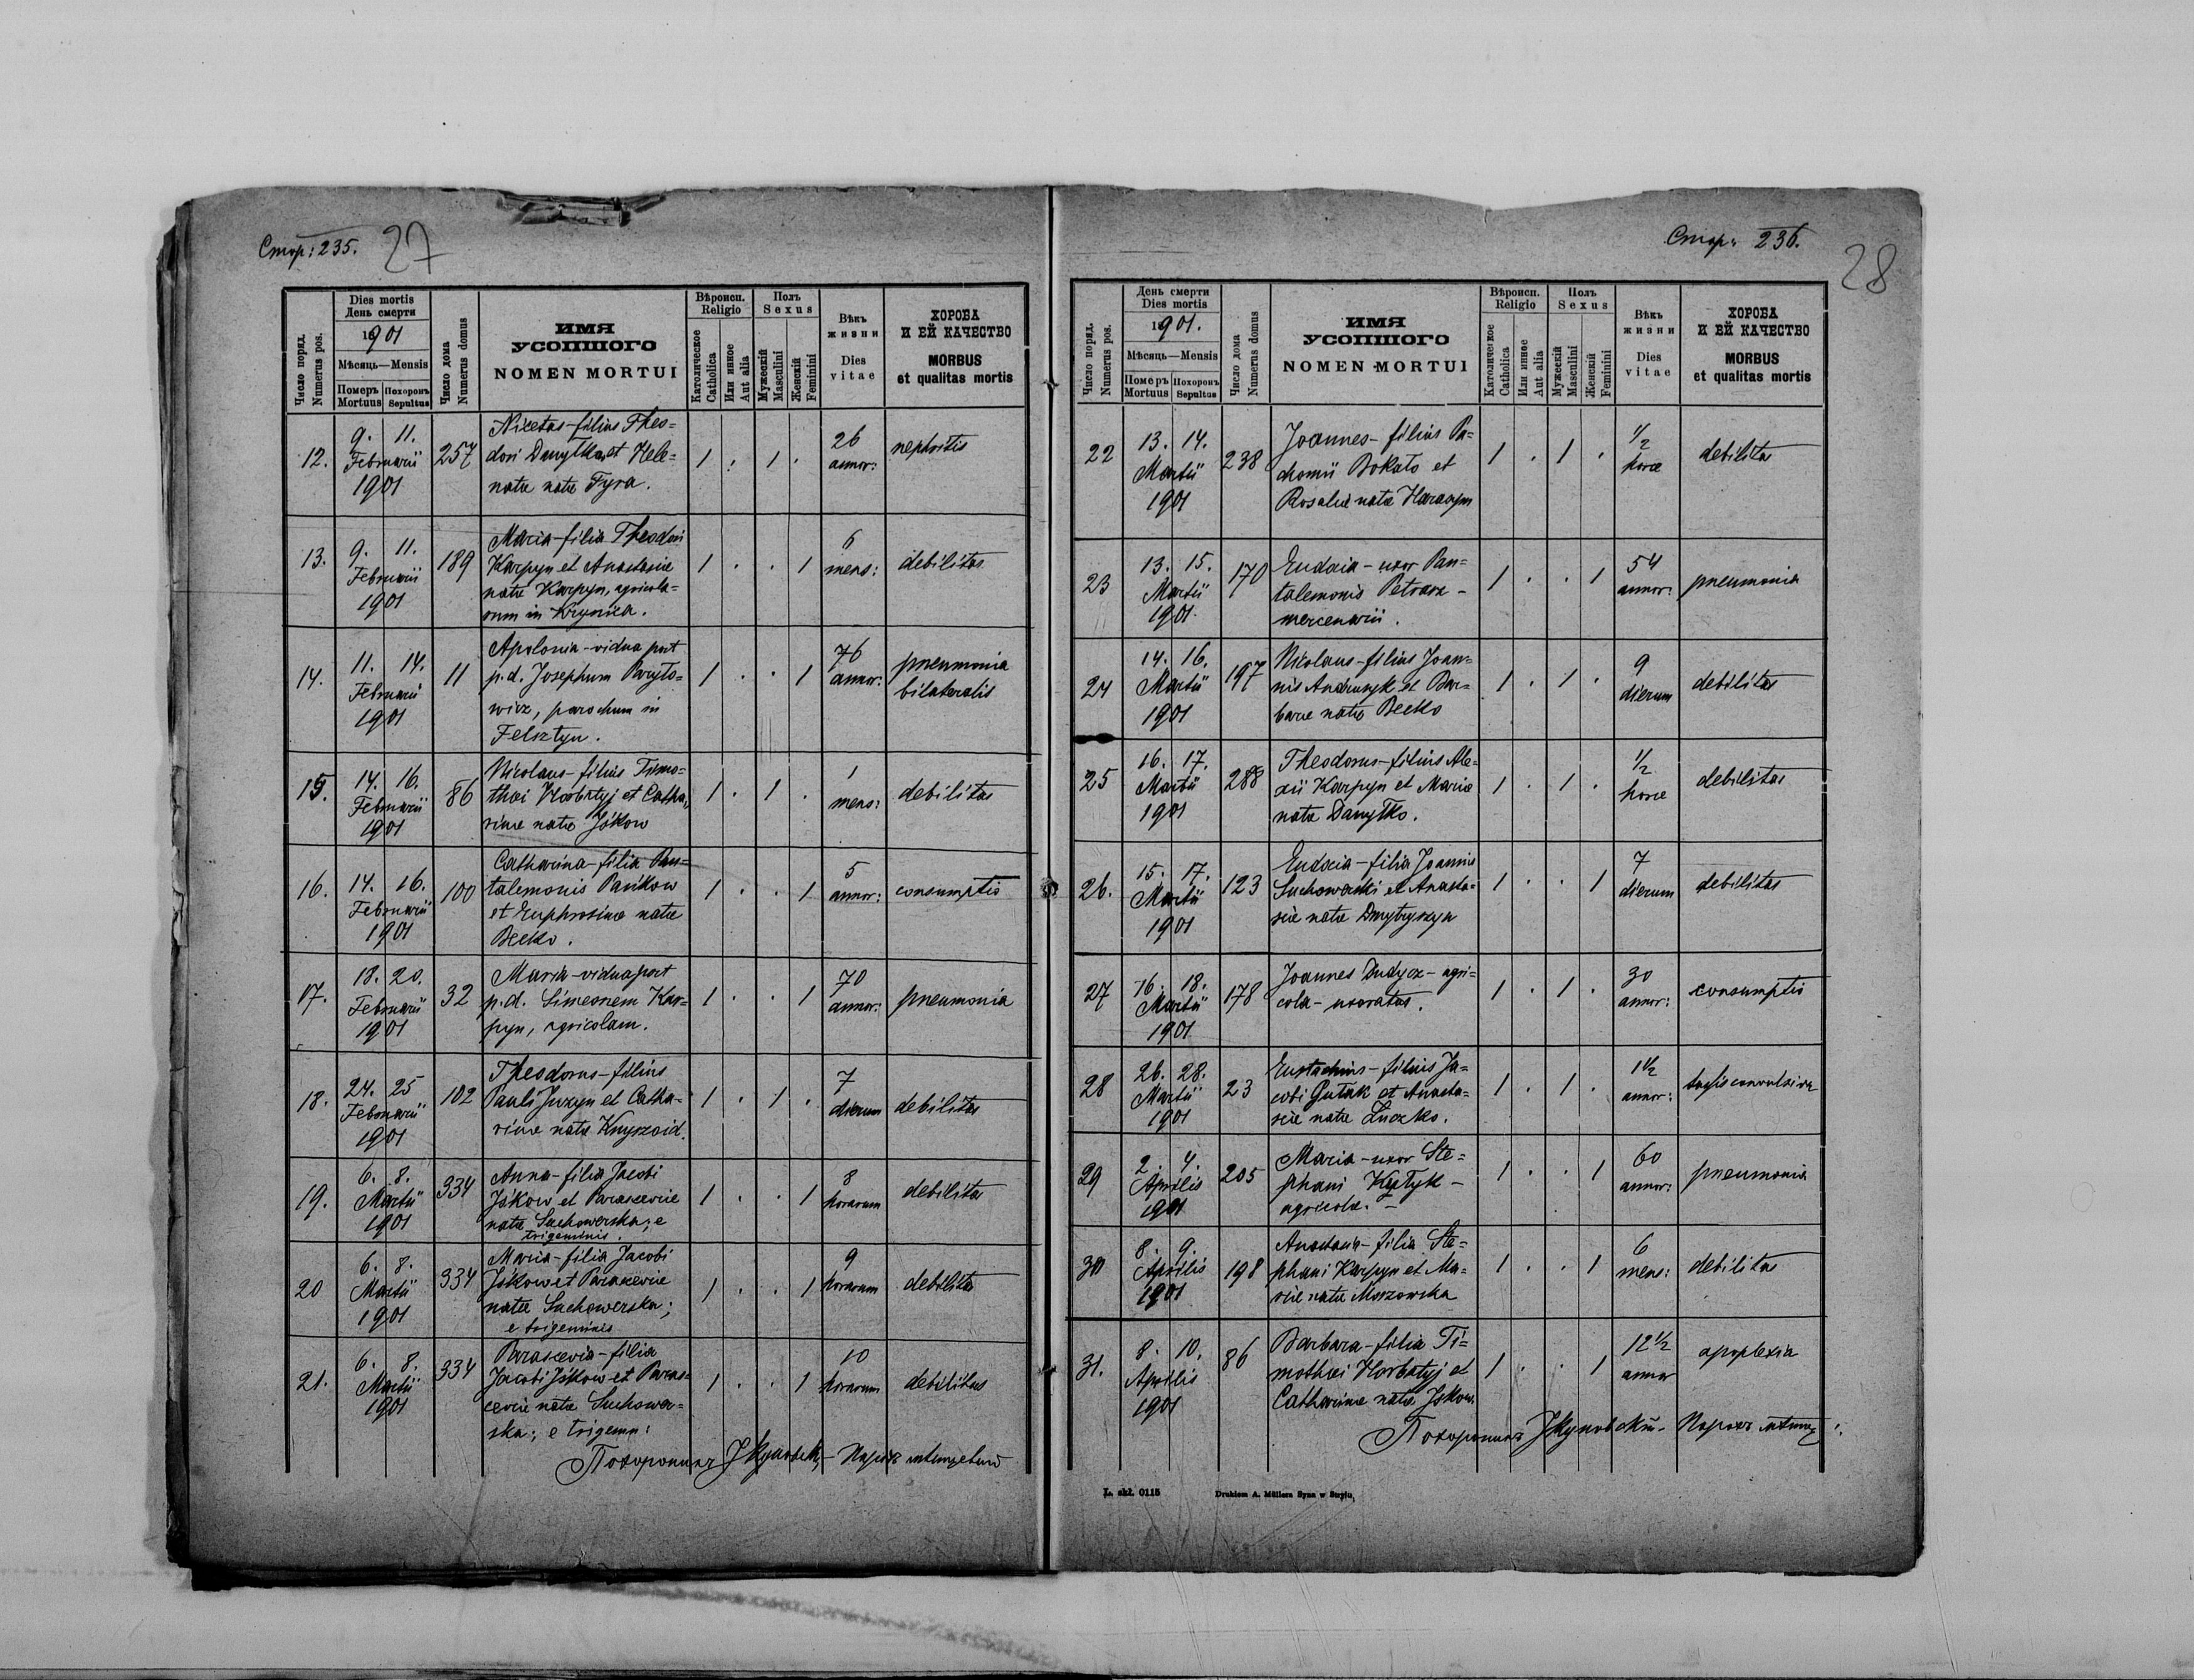 Стор: 235.
27
Число поряд.
Numerus pos.
Dies mortis
День смерти
1901
Мѣсяць—Mensis
Померъ
Mortuus
Похоронъ
Sepultus
Число дома
Numerus domus
ИМЯ
УСОПШОГО
NOMEN MORTUI
Вѣроисп.
Religio
Католическое
Catholica
Или инное
Aut alia
Полъ
Sexus
Мужескій
Masculini
Женскій
Feminini
Вѣкъ
жизни
Dies
vitae
ХОРОБА
И ЕЙ КАЧЕСТВО
MORBUS
et qualitas mortis
12. 9. 11. Februarii 1901 257
Nicetas - filius Theo=
dori Danyłko et Hele=
natæ natæ Tyra.
1 . 1 . 26 annor: nephritis
13. 9. 11. Februarii 1901 189
Maria - filia Theodori
Karpyn et Anastasiæ
natæ Karpyn, agricola=
rum in Krynica.
1 . . 1 6 mens: debilitas
14. 11. 14. Februarii 1901 11
Apolonia - vidua post
p.d. Josephum
wicz, parochum in
Felsztyn.
1 . . 1 76 annor: pneumonia
bilateralis
15. 14. 16. Februarii 1901 86
Nicolaus - filius Timo=
thæi Horbatyj et Catha=
rinæ natæ Jśkow
1 . 1 . 1 mens: debilitas
16. 14. 16. Februarii 1901 100
Catharina - filia Pan=
talemonis Pańkow
et Euphrosinæ natæ
Becko.
1 . . 1 5 annor: consumptio
17. 18. 20. Februarii 1901 32
Maria - vidua post
p.d. Simeonem Kar=
pyn, agricolam.
1 . . 1 70 annor: pneumonia
18. 24. 25 Februarii 1901 102
Theodorus - filius
Pauli Jurzyn et Catha=
rinæ natæ
1 . 1 . 7 dierum debilitas
19. 6. 8. Martii 1901 334
Anna - filia Jacobi
Jśkow et Parasceviæ
natæ Suchowerska; e
trigeminis.
1 . . 1 8 horarum debilitas
20 6. 8. Martii 1901 334
Maria - filia Jacobi
Jśkow et Parasceviæ
natæ Suchowerska;
e trigeminis
1 . . 1 9 horarum debilitas
21. 6. 8. Martii 1901 334
Parascevia - filia
Jacobi Jśkow et Paras=
ceviæ natæ Suchower=
ska; e trigemin:
1 . . 1 10 horarum debilitas
Похоронилъ
Стор: 236.
28
Число поряд.
Numerus pos.
День смерти
Dies mortis
1901.
Мѣсяць—Mensis
Померъ
Mortuus
Похоронъ
Sepultus
Число дома
Numerus domus
ИМЯ
УСОПШОГО
NOMEN MORTUI
Вѣроисп.
Religio
Католическое
Catholica
Или инное
Aut alia
Полъ
Sexus
Мужескій
Masculini
Женскій
Feminini
Вѣкъ
жизни
Dies
vitae
ХОРОБА
И ЕЙ КАЧЕСТВО
MORBUS
et qualitas mortis
22 13. 14. Martii 1901 238
Joannes - filius Pa=
chomii Bokało et
Rosaliæ natæ Harasym
1 . 1 . 1/2 horæ debilitas
23 13. 15. Martii 1901. 170
Eudocia - uxor Pan=
talemonis Petrasz -
mercenarii.
1 . . 1 54 annor: pneumonia
24 14. 16. Martii 1901 197
Nicolaus - filius Joan=
nis Andrunyk et Bar=
baræ natæ Becko
1 . 1 . 9 dierum debilitas
25 16. 17. Martii 1901 288
Theodorus - filius Ale=
xii Karpyn et Mariæ
natæ Danyłko.
1 . 1 . 1/2 horæ debilitas
26. 15. 17. Martii 1901 123
Eudocia - filia Joannis
Suchowerski et Anasta=
siæ natæ Dmytryszyn
1 . . 1 7 dierum debilitas
27 16. 18. Martii 1901 178
Joannes Dudycz - agri=
cola - uxoratus.
1 . 1 . 30 annor: consumptio
28 26. 28. Martii 1901 23
Eustachius - filius Ja=
cobi Gutak et Anasta=
siæ natæ Łuczko.
1 . 1 . 1 1/2 annor: tussis convulsiva
29 2. 4. Aprilis 1901 205
Maria - uxor Ste=
phani -
agricolæ. -
1 . . 1 60 annor: pneumonia
30 8. 9. Aprilis 1901 198
Anastasia - filia Ste=
phani Karpyn et Ma=
riæ natæ Morzowska
1 . . 1 6 mens: debilitas
31. 8. 10. Aprilis 1901 86
Barbara - filia Ti=
mothæi Horbatyj et
Catharinæ natæ Jśkow
1 . . 1 12 1/2 annor apoplexia
Похоронилъ
L. skł. 0115
Drukiem A. Müllera Syna w Stryju.